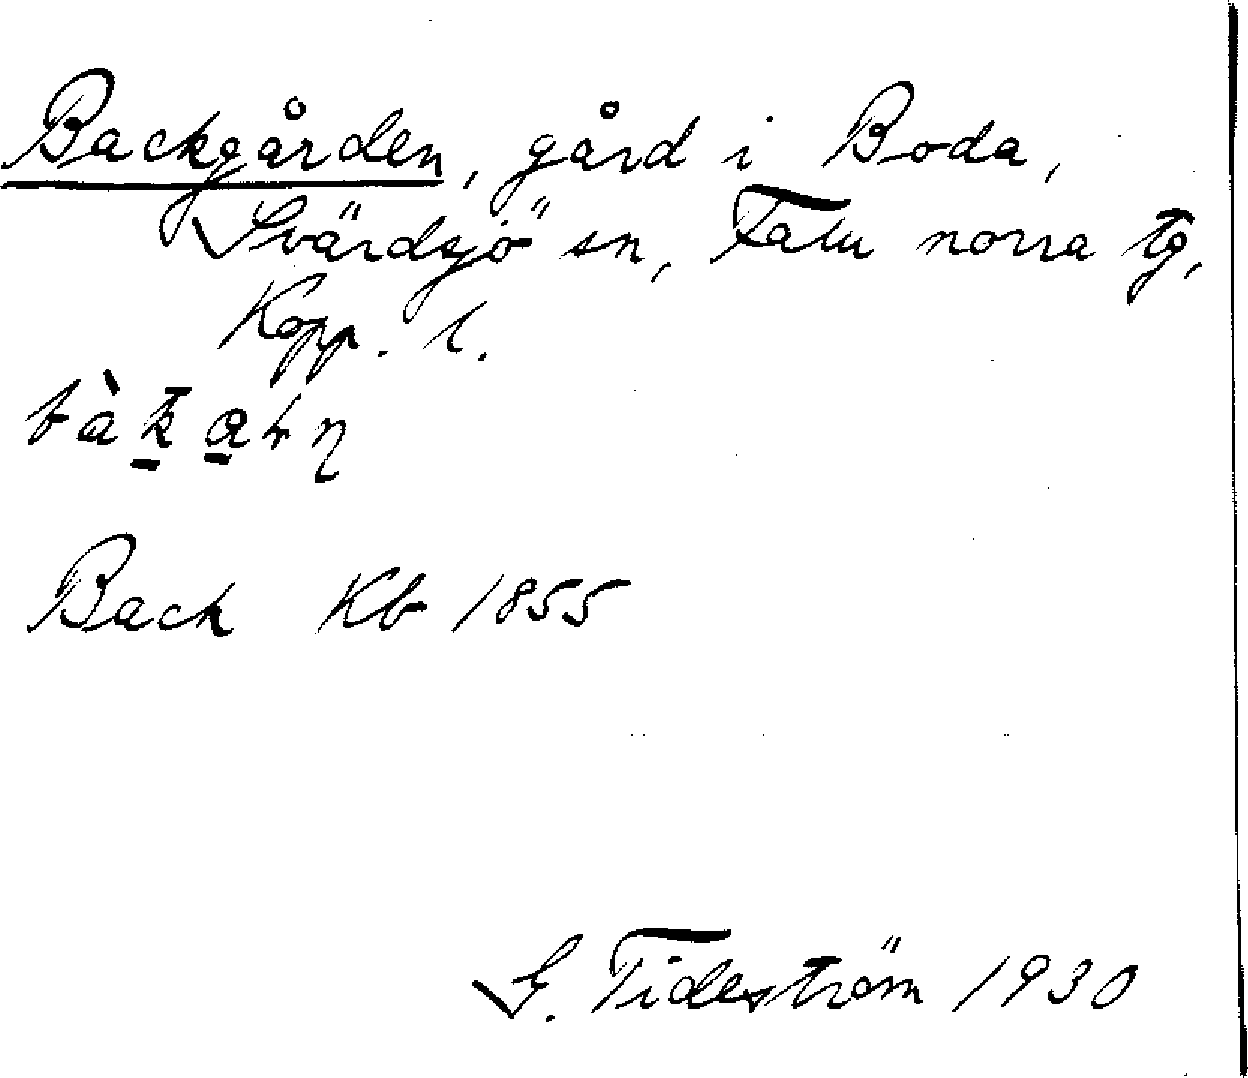 Backgården, gård i Boda,
Svärdsjö sn, Falu norra tg,
Kopp. l.
Back Kb 1855
G. Tideström 1930